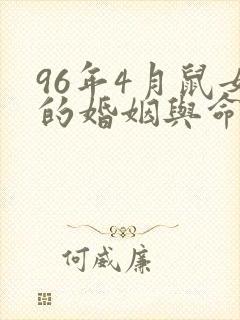 96年4月鼠女
的婚姻與命
何威廉